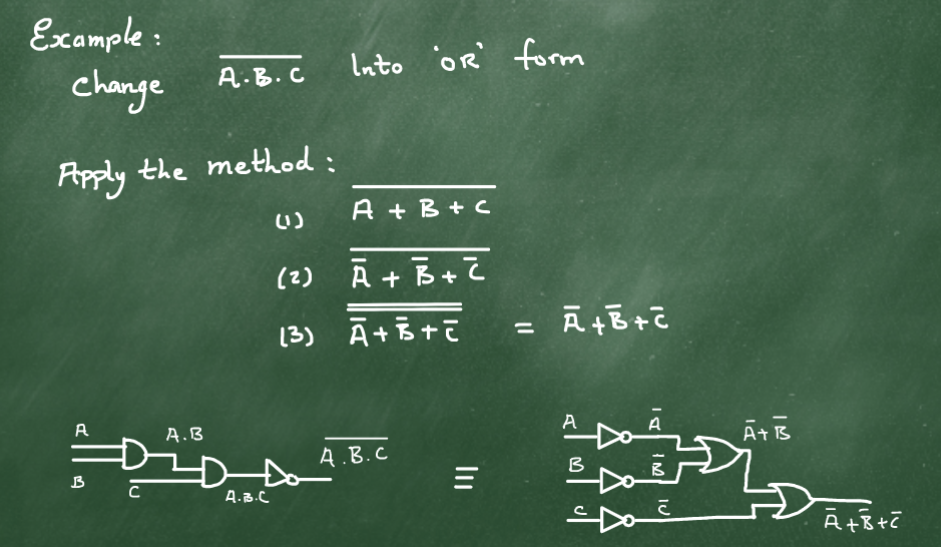 Example :
Change A̅.̅B̅.̅C̅ Into 'OR' form
Apply the method :
(1) A̅ ̅+̅ ̅B̅ ̅+̅ ̅C̅
(2) \overline{Ā + B̄ + C̄}
(3) \overline{\overline{Ā + B̄ + C̄}} = Ā + B̄ + C̄
A
A.B
B
C
A.B.C
A̅.̅B̅.̅C̅
≡
A
Ā
B
B̄
C
C̄
Ā + B̄
Ā + B̄ + C̄